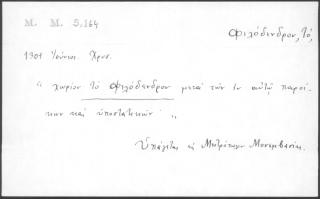 M. M. 5,164
Φιλόδενδρον, τό,
1301 Ἰούνιος Χρυσ.
"χωρίον τὸ Φιλόδενδρον μετὰ τῶν ἐν αὐτῷ παροί-
κων καὶ ὑποστατικῶν"
Ὑπάγεται εἰς Μητρόπολιν Μονεμβασίας